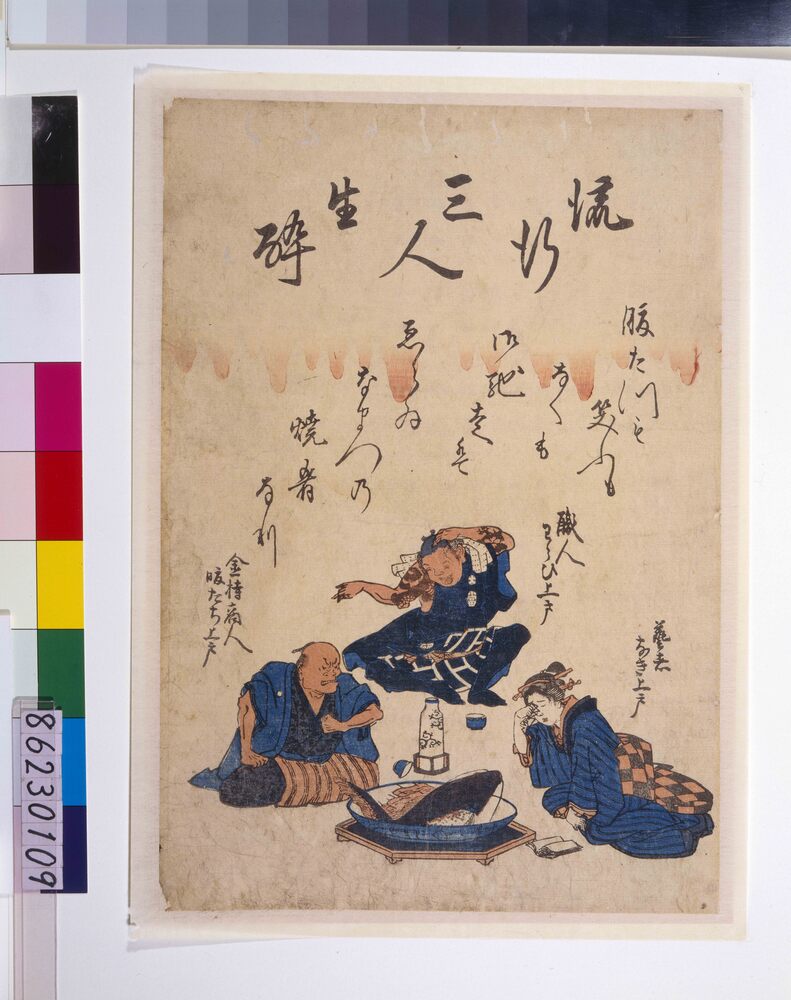 流行三人生酔
腹たつも
笑ふも
なくも
御馳
走にて
ゑらゐ
なまつの
焼肴
なり
職人
わらひ上戸
藝者
なき上戸
金持商人
腹たち上戸
86230109